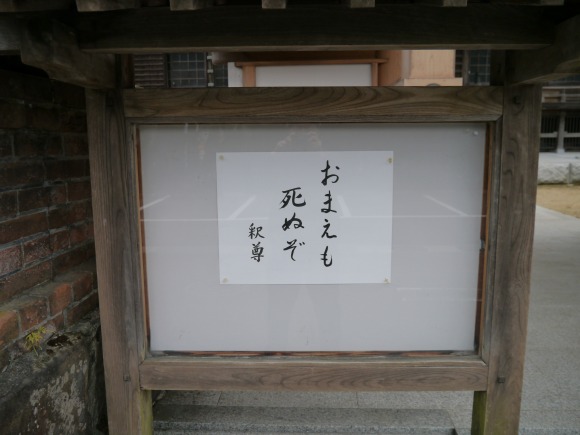 おまえも
死ぬぞ
釈尊